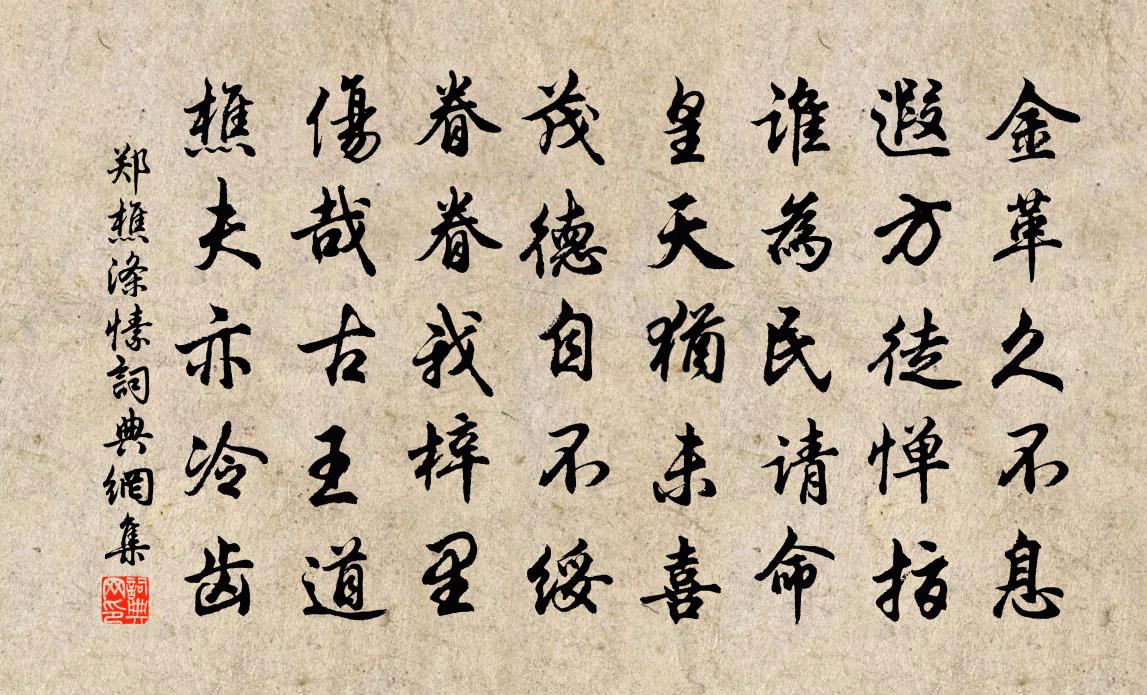 金革久不息
遐方徒惮指
谁為民请命
皇天猶未喜
茂德自不绥
眷眷我梓里
傷哉古王道
樵夫亦冷齿
郑樵涤愫詞典網集
詞典网印